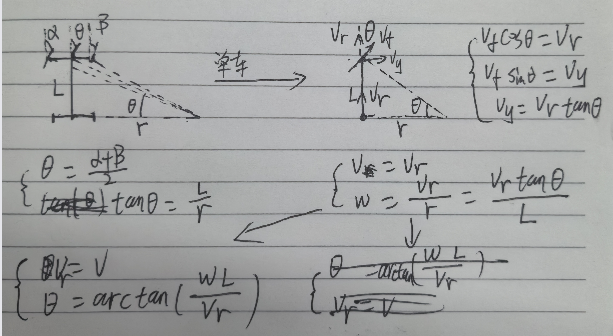 α θ β
L
θ
r
单车
Vr θ Vf
Vy
L Vr
θ
r
Vf cosθ = Vr
Vf sinθ = Vy
Vy = Vr tanθ
θ = (α+β)/2
tanθ = L/r
V = Vr
W = Vr/r = Vr tanθ/L
Vr = V
θ = arctan(WL/Vr)
θ = arctan(WL/Vr)
Vr = V